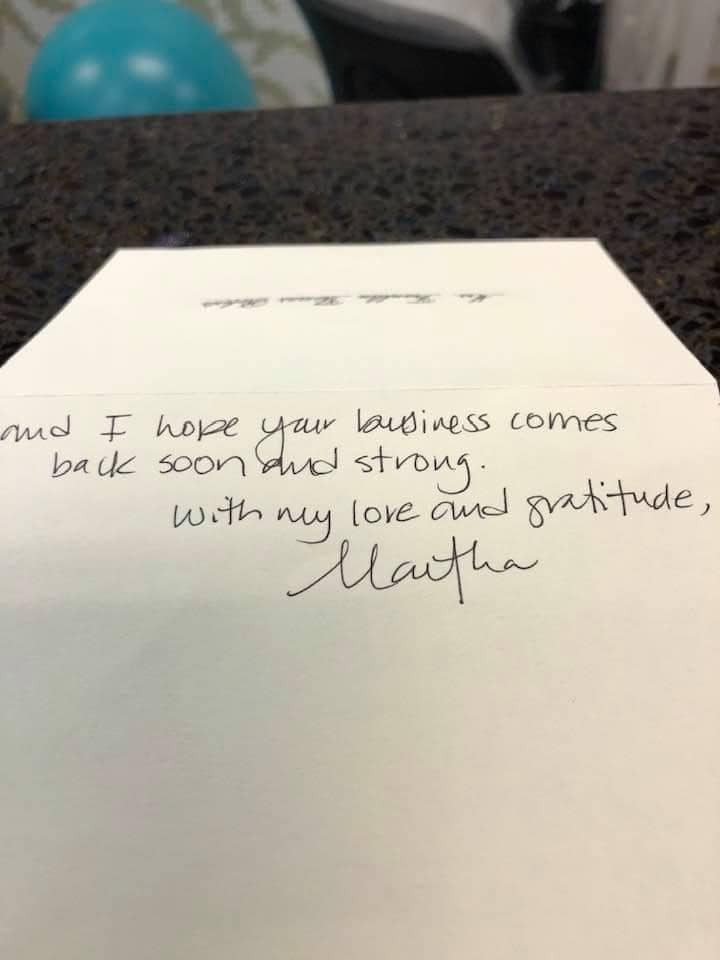 and I hope your business comes
back soon and strong.
with my love and gratitude,
Martha